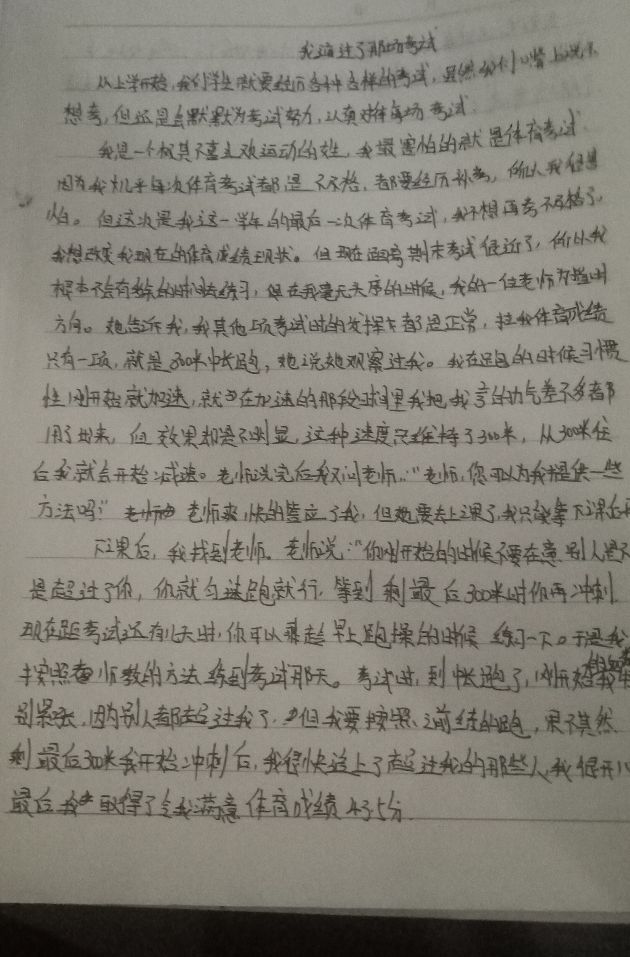 我通过了那场考试
从上学开始,我们学生就要经历各种各样的考试,虽然我们口嘴上说不
想考,但还是会默默为考试努力,认真对待每场考试
我是一个极其不喜欢运动的女生,我最害怕的就是体育考试
因为我几乎每次体育考试都是不及格,都要经历补考,所以我很害
怕。但这次是我这一学年的最后一次体育考试,我不想再考不及格了,
我想改变我现在的体育成绩现状。但现在距离期末考试很近了,所以我
根本不会有多余的时间去练习,但在我毫无头序的时候,我的一位老师为我指明
方向。她告诉我,我其他项考试时的发挥都是正常,拉我体育成绩
只有一项,就是800米中长跑,她说她观察过我。我在跑的时候习惯
性刚开始就加速,就在加速的那段时间里我把我的力气差不多都
用了出来,但效果却是不明显,这种速度只维持了300米,从300米往
后我就会开始减速。老师说完后我又问老师:“老师,您可以为我提供一些
方法吗?”老师爽快的答应了我,但她要去上课了,我只能等下课后再
下课后,我找到老师。老师说:“你刚开始的时候不要在意别人是不
是超过了你,你就匀速跑就行,等到剩最后300米时你再冲刺
现在距考试还有几天时,你可以乘趁早上跑操的时候练习一下。于是我
按照老师教的方法练到考试那天。考试时,到中长跑了,刚开始我
别紧张,因为别人都超过我了,但我要按照之前练的跑,果不其然
剩最后300米我开始冲刺后,我很快追上了超过我的那些人,我很开心
最后我取得了令我满意体育成绩435分